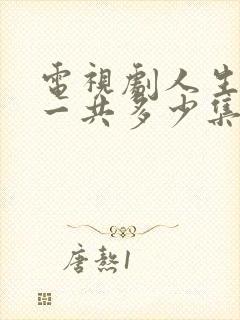 電視劇人生
一共多少集
唐熬1